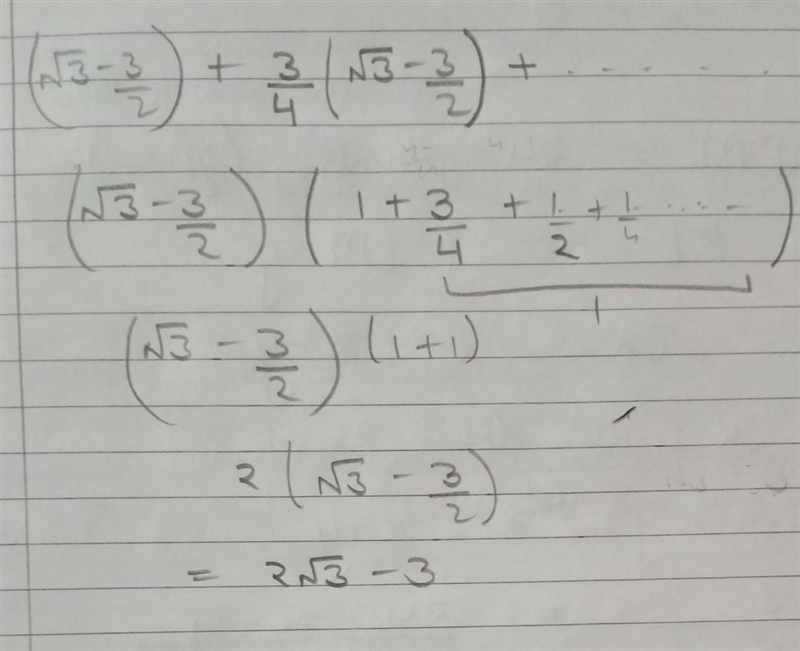 (√3 - 3/2) + 3/4 (√3 - 3/2) + . . . . . .
(√3 - 3/2) (1 + 3/4 + 1/2 + 1/4 . . . . -)
1
(√3 - 3/2) (1 + 1)
2 (√3 - 3/2)
= 2√3 - 3